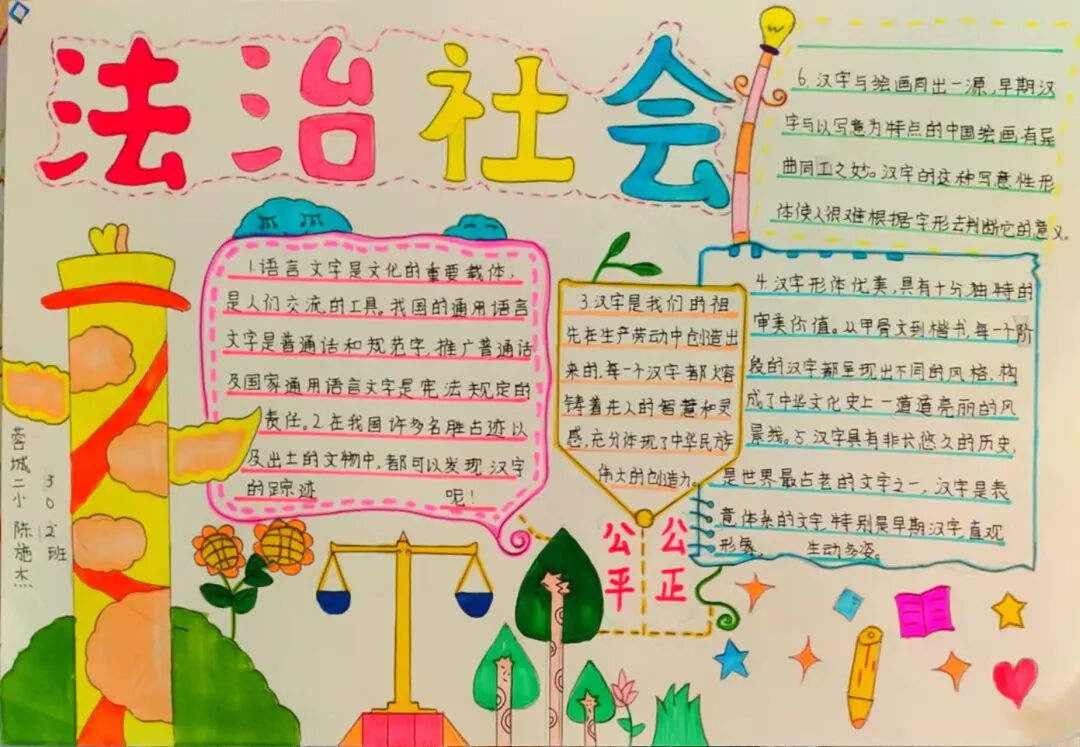 法治社会
1.语言文字是文化的重要载体,
是人们交流的工具。我国的通用语言
文字是普通话和规范字,推广普通话
及国家通用语言文字是宪法规定的
责任。2.在我国许多名胜占迹以
及出土的文物中,都可以发现汉字
的踪迹 呢!
3.汉字是我们的祖
先在生产劳动中创造出
来的,每一个汉字都熔
铸着先人的智慧和灵
感,充分体现了中华民族
伟大的创造力。
4.汉字形体优美,具有十分独特的
审美价值。从甲骨文到楷书,每一个阶
段的汉字都呈现出不同的风格、构
成了中华文化史上一道道亮丽的风
景线。5.汉字具有非长悠久的历史,
是世界最古老的文字之一,汉字是表
意体系的文字,特别是早期汉字,直观
形象, 生动多姿。
6.汉字与绘画同出一源,早期汉
字与以写意为特点的中国绘画,有异
曲同工之妙。汉字的这种写意性形
体使人很难根据字形去判断它的意义。
公平
公正
蓉城二小 302班
陈施杰